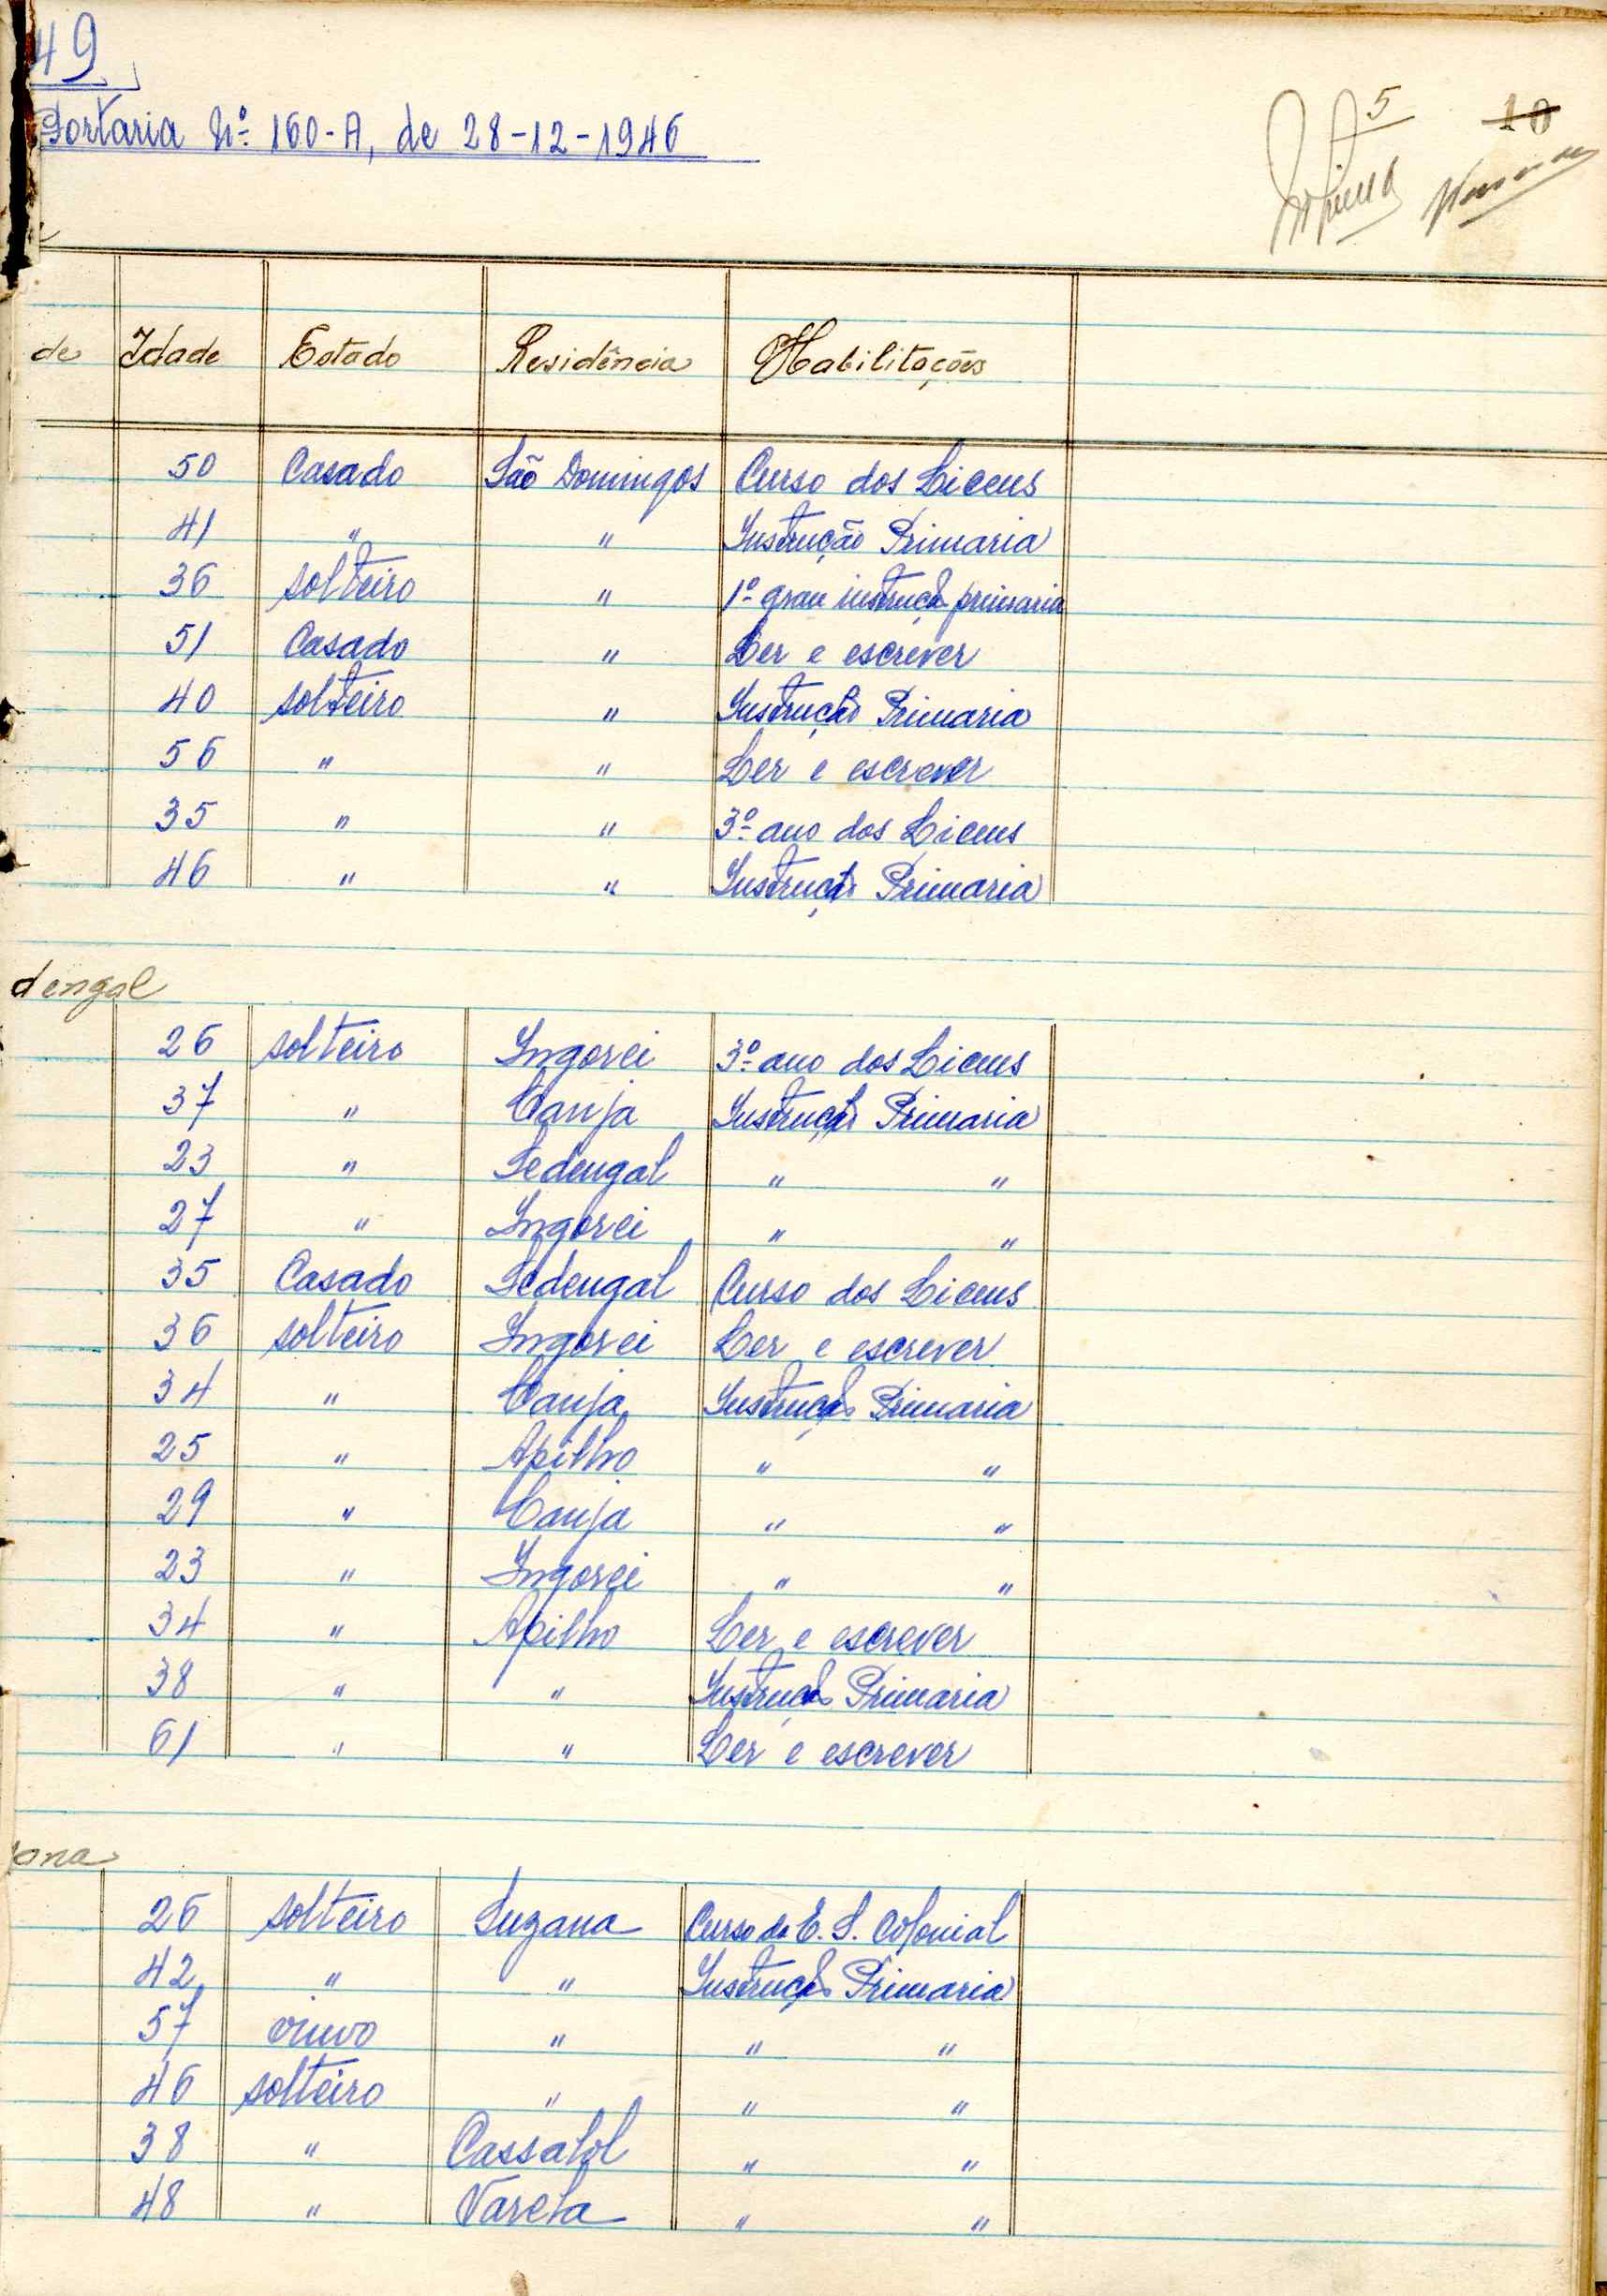 49
Portaria Nº 160-A, de 28-12-1946
5
10
de Idade Estado Residência Habilitações
50 Casado São Domingos Curso dos Liceus
41 " " Instrução Primaria
36 solteiro " 1º grau instrução primaria
51 Casado " Ler e escrever
40 solteiro " Instrução Primaria
56 " " Ler e escrever
35 " " 3º ano dos Liceus
46 " " Instrução Primaria
dengal
26 solteiro Ingorei 3º ano dos Liceus
37 " Canja Instrução Primaria
23 " Sedengal " "
27 " Ingorei " "
35 Casado Sedengal Curso dos Liceus
36 solteiro Ingorei Ler e escrever
34 " Canja Instrução Primaria
25 " Apilho " "
29 " Canja " "
23 " Ingorei " "
34 " Apilho Ler e escrever
38 " " Instrução Primaria
61 " " Ler e escrever
ana
26 solteiro Suzana Curso da E. S. Colonial
42 " " Instrução Primaria
57 viuvo " " "
46 solteiro " " "
38 " Cassalol " "
48 " Varela " "